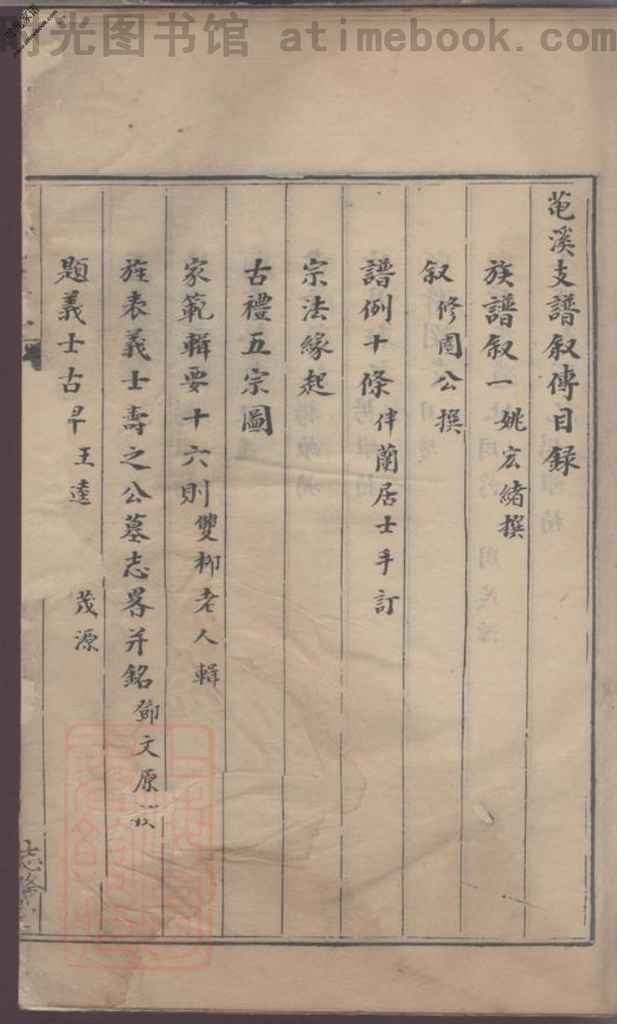 时光图书馆 atimebook.com
苞溪支譜叙傳目録
族譜叙一 姚宏緒撰
叙 修周公撰
譜例十條 伴蘭居士手訂
宗法緣起
古禮五宗圖
家範輯要十六則 雙柳老人輯
旌表義士壽之公墓志畧并銘 鄧文原
題義士古 王逵 茂源